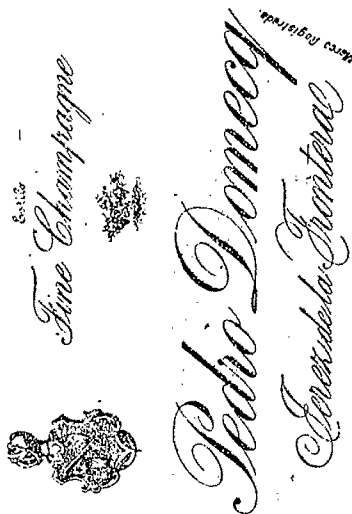 Estilo
Fine Champagne
Pedro Domecq
Jerez de la Frontera
Marca Registrada.